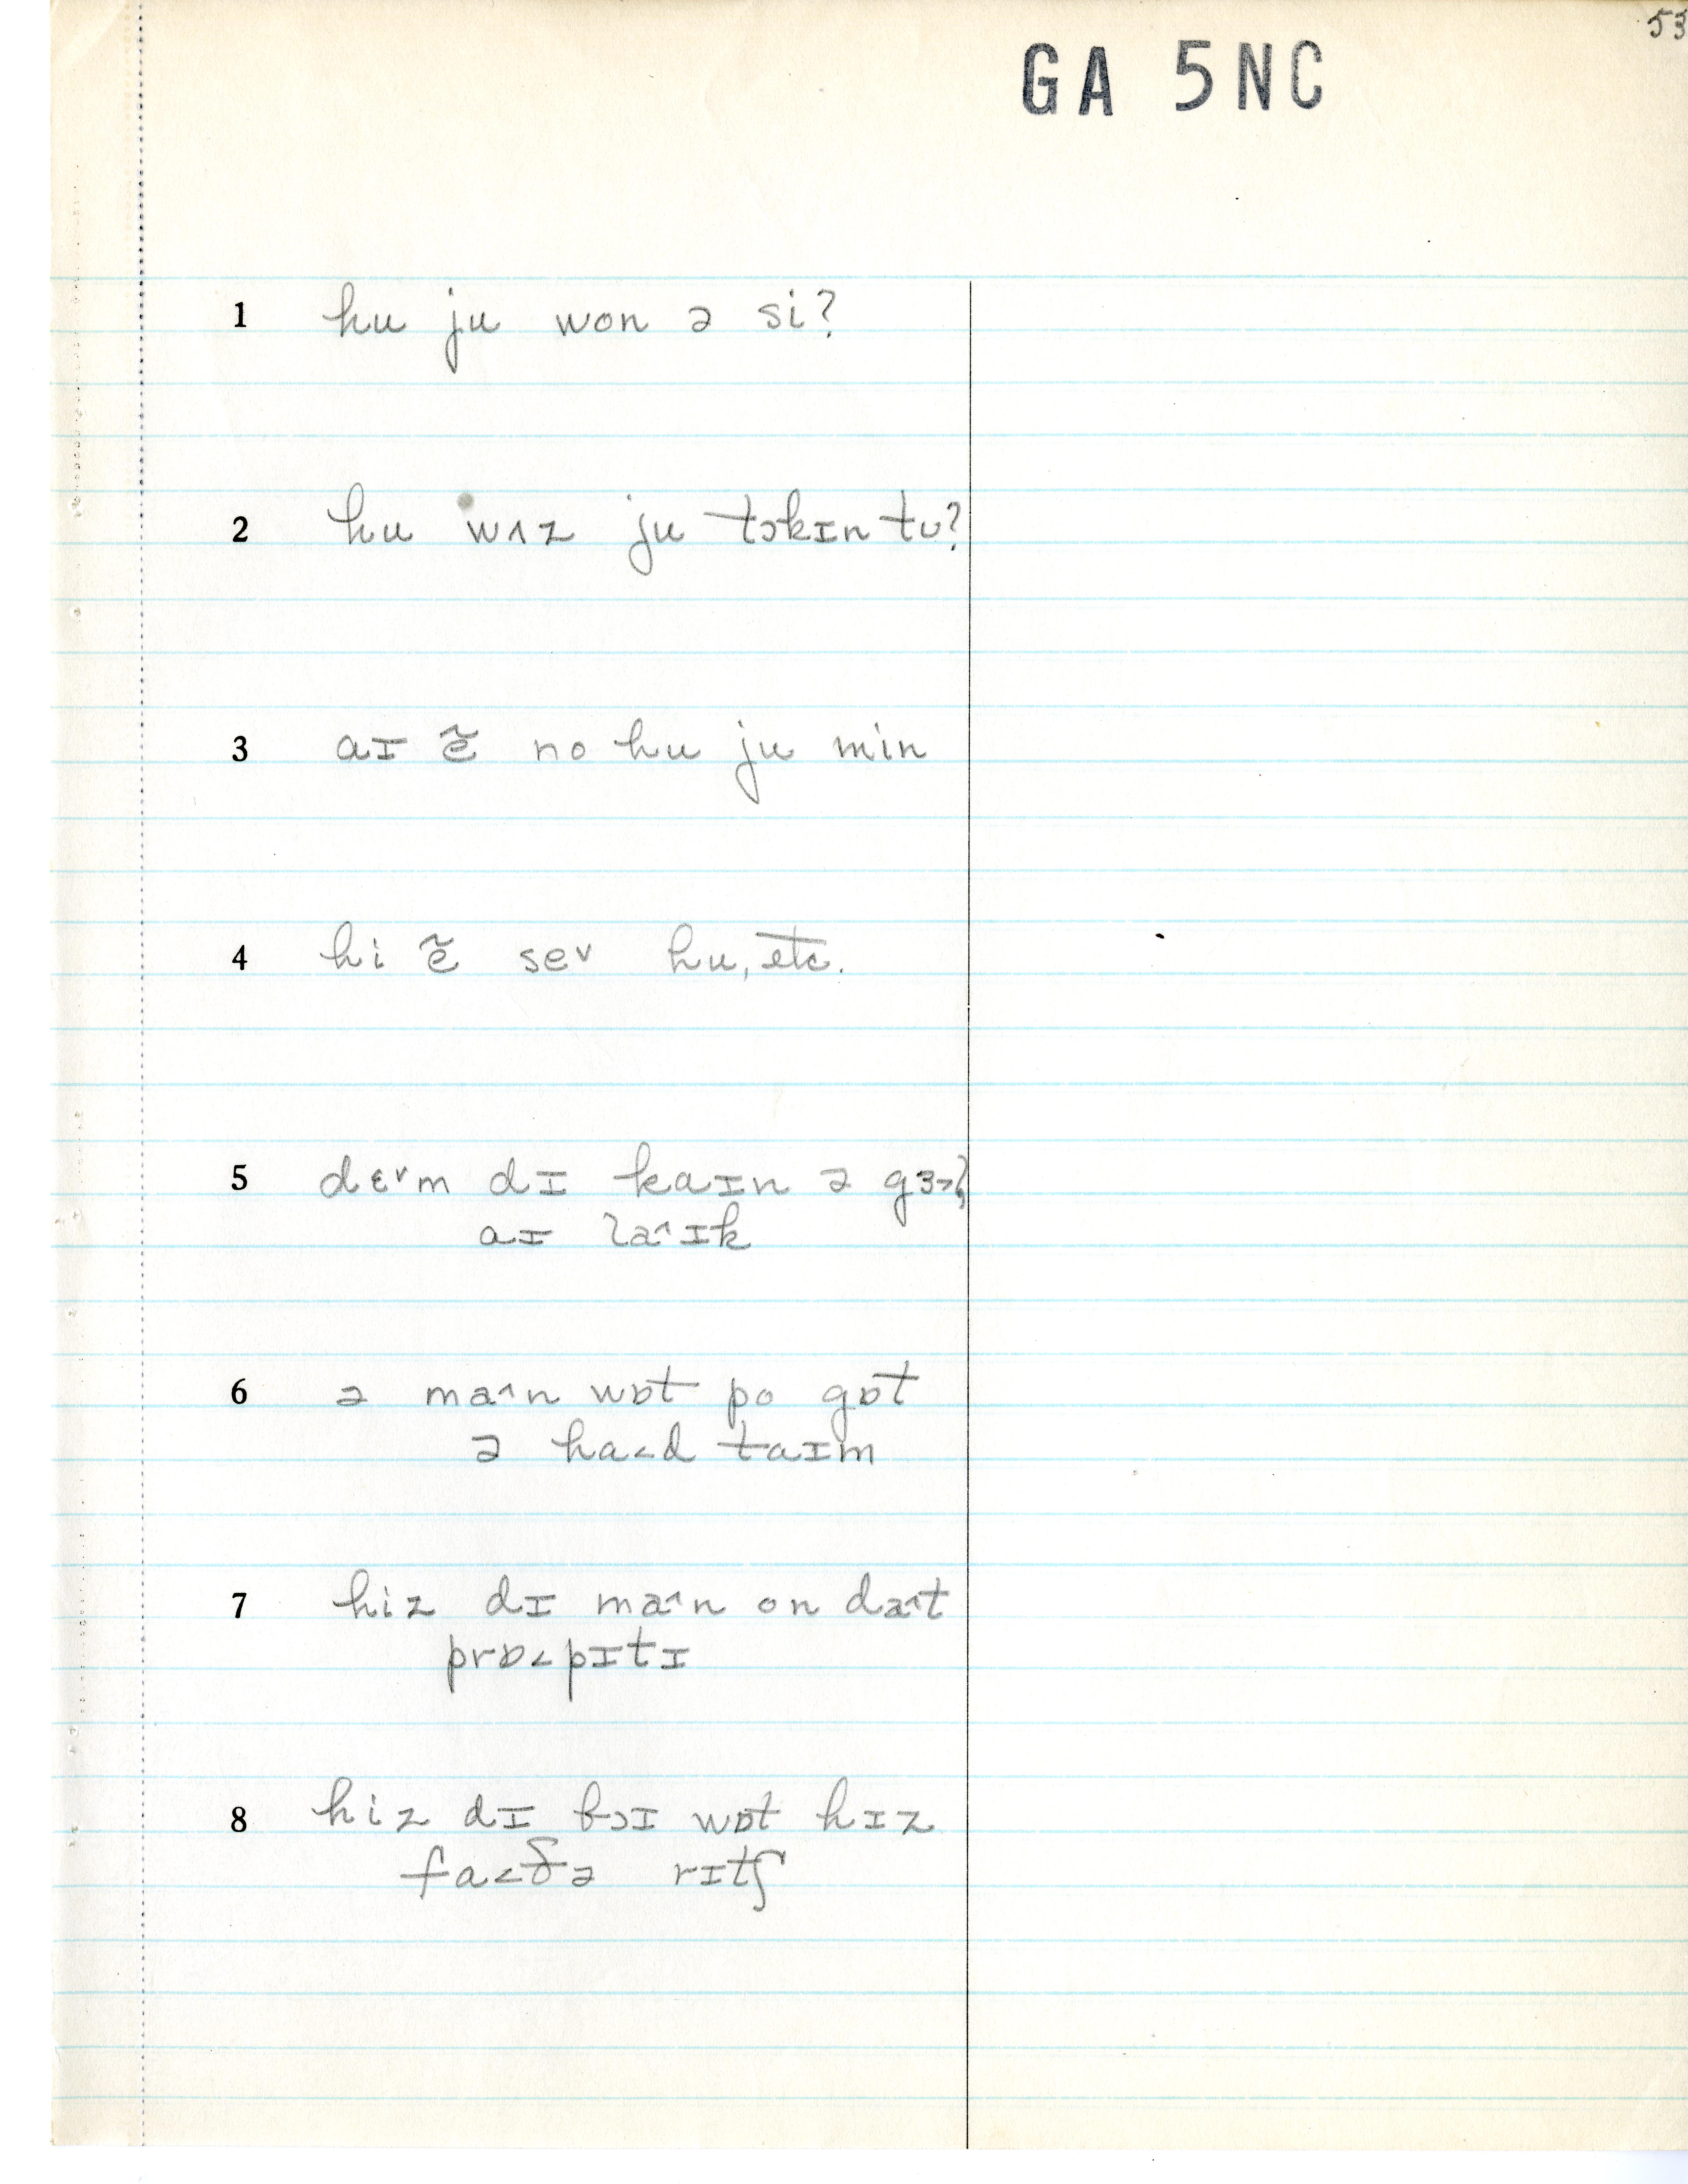 53
GA 5NC
1 hu ju won ə si?
2 hu wʌz ju tɔkɪn tu?
3 aɪ ẽ no hu ju min
4 hi ẽ se˅ hu, etc.
5 dɛ˅m dɪ kaɪn ə
aɪ la˄ɪk
6 ə ma˄n wɒt po gɒt
ə ha˂d taɪm
7 hiz dɪ ma˄n on da˄t
prɒ˂pɪtɪ
8 hiz dɪ bɔɪ wɒt hɪz
fa˂ðə rɪtʃ